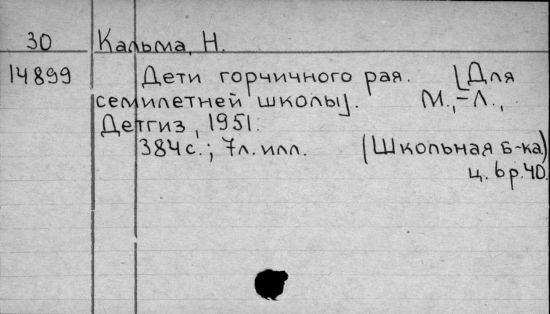 30 Кальма, Н.
14899 Дети горчичного рая. [Для
семилетней школы]. М.,-Л.,
Детгиз, 1951.
384 с.; 7 л. илл. (Школьная б-ка)
ц. 6 р. 40.